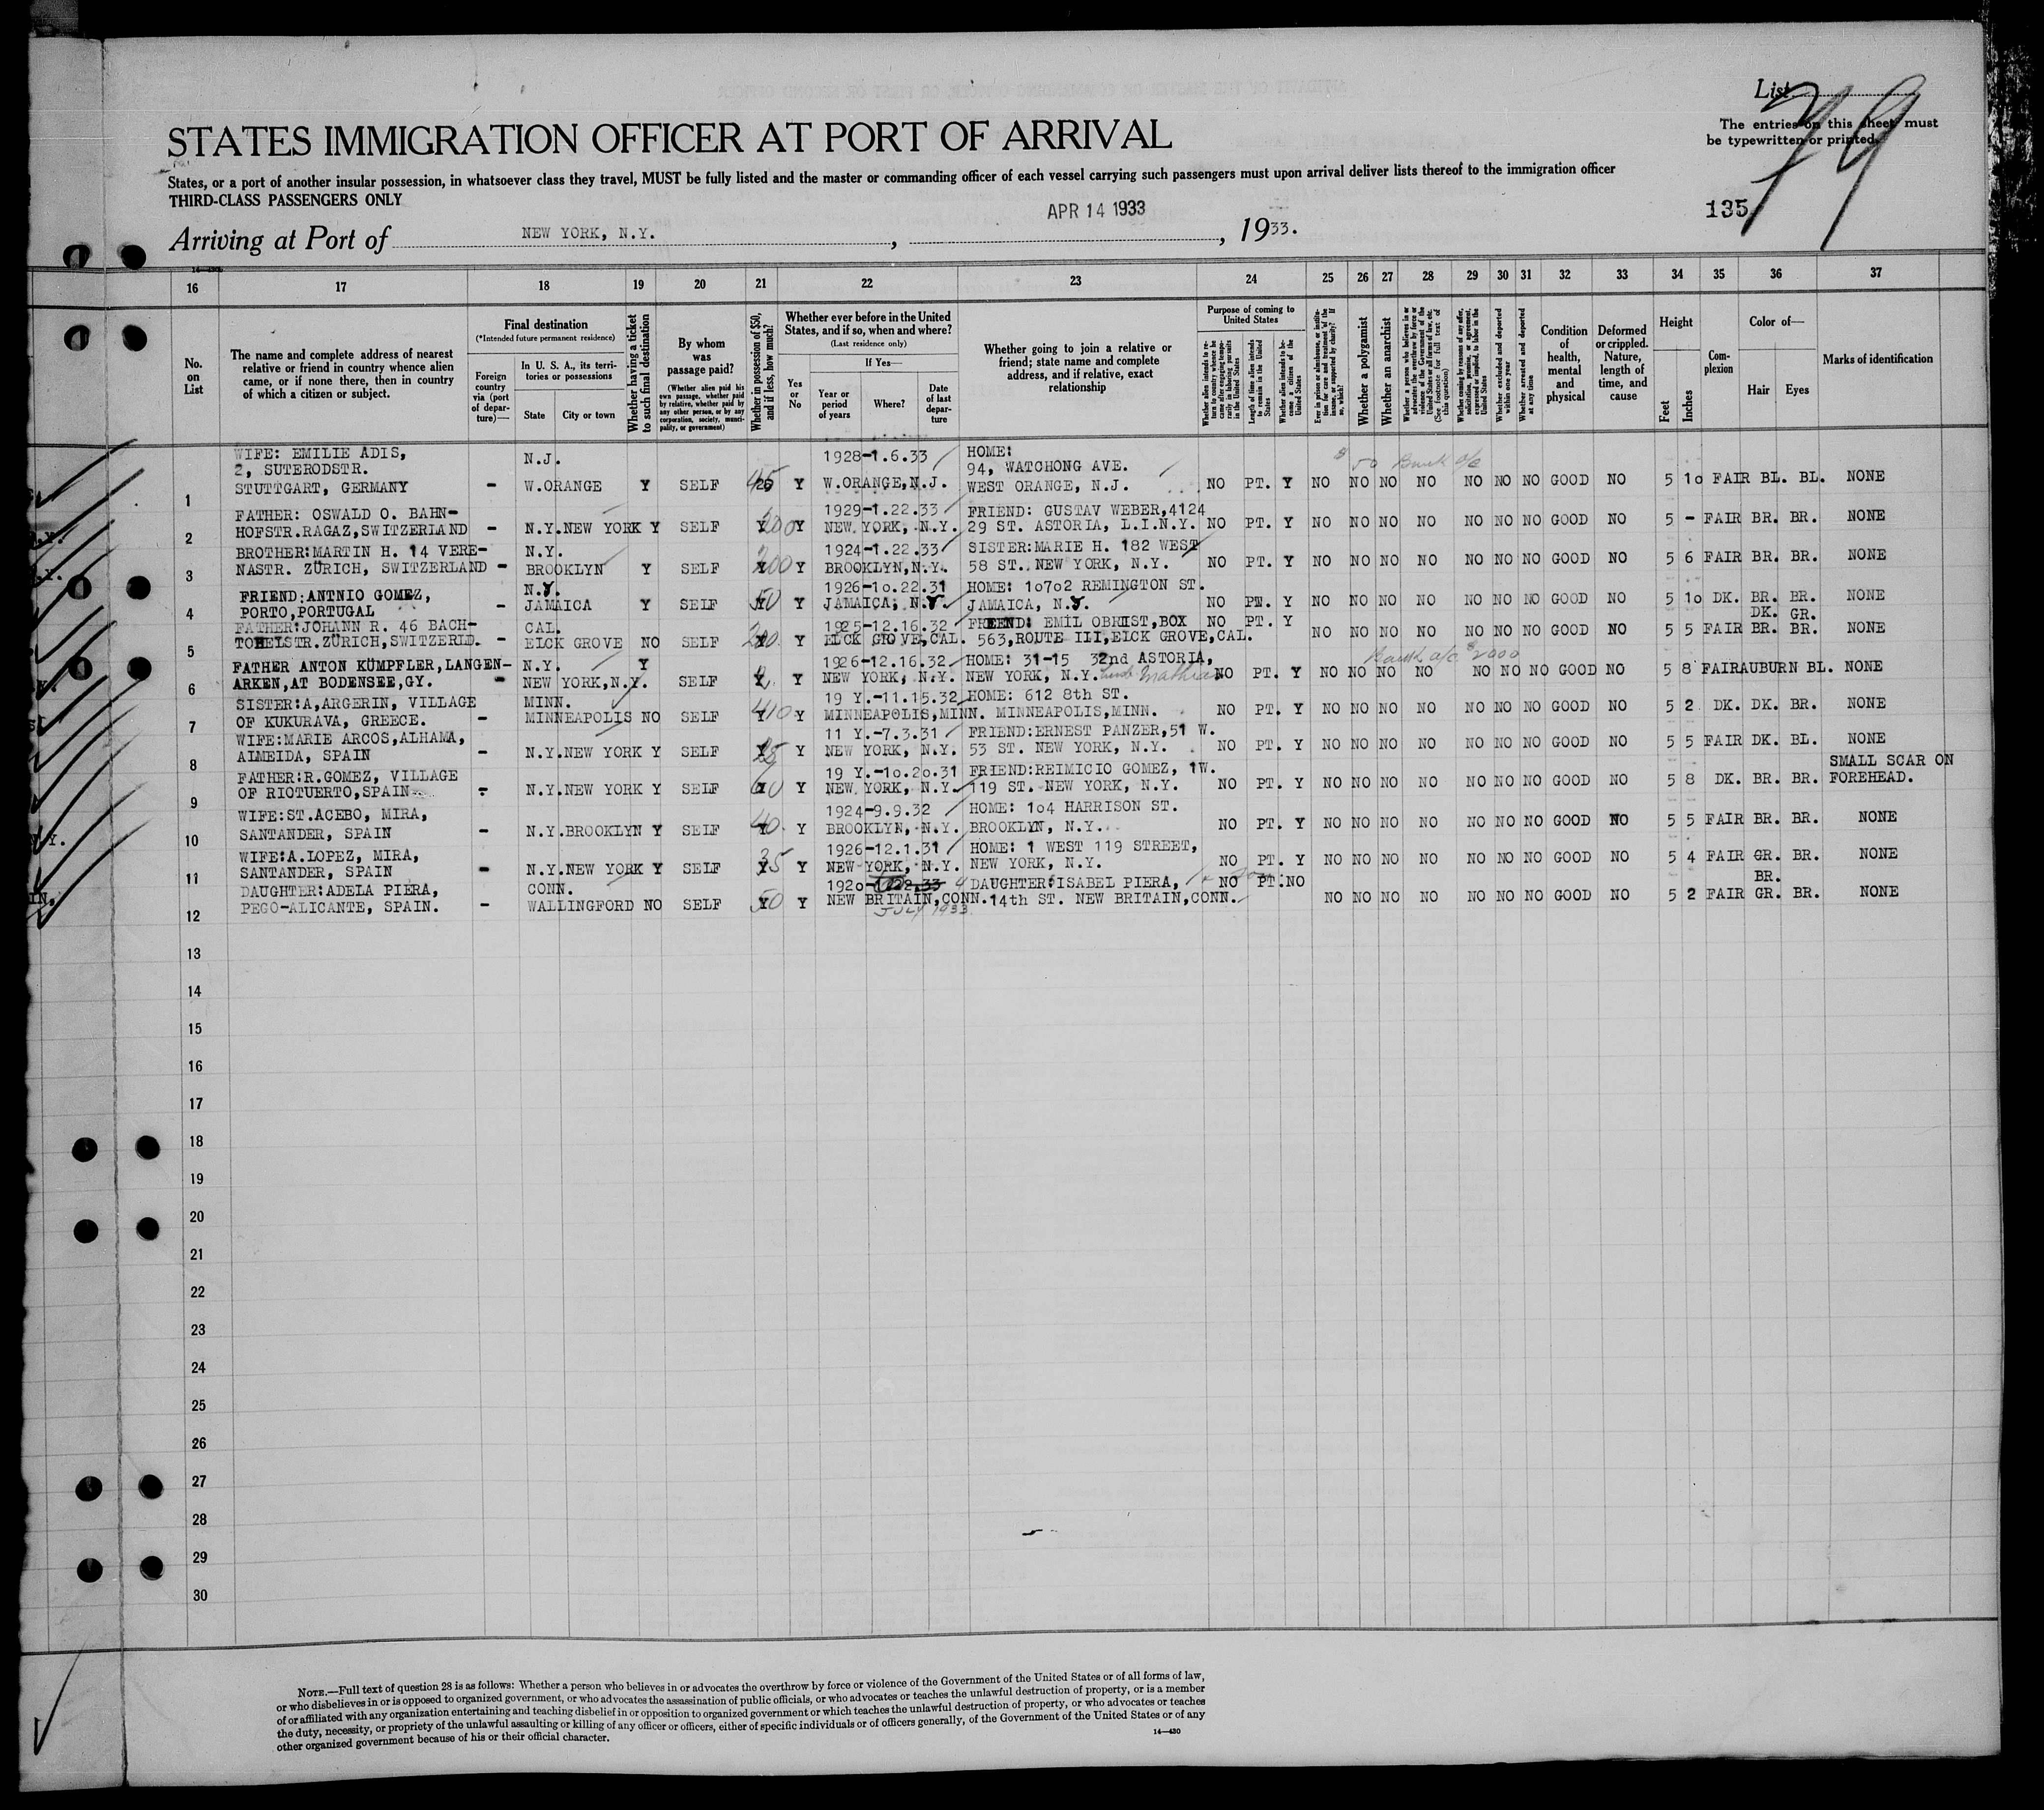 List
79
The entries on this sheet must
be typewritten or printed.
STATES IMMIGRATION OFFICER AT PORT OF ARRIVAL
States, or a port of another insular possession, in whatsoever class they travel, MUST be fully listed and the master or commanding officer of each vessel carrying such passengers must upon arrival deliver lists thereof to the immigration officer
THIRD-CLASS PASSENGERS ONLY
APR 14 1933
135
Arriving at Port of NEW YORK, N.Y. , , 1933.
16 17 18 19 20 21 22 23 24 25 26 27 28 29 30 31 32 33 34 35 36 37
No. on List
The name and complete address of nearest relative or friend in country whence alien came, or if none there, then in country of which a citizen or subject.
Final destination
(*Intended future permanent residence)
Foreign country via (port of departure)—
In U. S. A., its territories or possessions
State
City or town
Whether having a ticket to such final destination
By whom was passage paid?
(Whether alien paid his own passage, whether paid by relative, whether paid by any other person, or by any corporation, society, municipality, or government)
Whether in possession of $50, and if less, how much?
Whether ever before in the United States, and if so, when and where?
(Last residence only)
Yes or No
If Yes—
Year or period of years
Where?
Date of last departure
Whether going to join a relative or friend; state name and complete address, and if relative, exact relationship
Purpose of coming to United States
Whether alien intends to return to country whence he came after engaging temporarily in laboring pursuits in the United States
Length of time alien intends to remain in the United States
Whether alien intends to become a citizen of the United States
Ever in prison or almshouse, or institution for care and treatment of the insane, or supported by charity? If so, which?
Whether a polygamist
Whether an anarchist
Whether a person who believes in or advocates the overthrow by force or violence of the Government of the United States or all forms of law, etc. (See footnote for full text of this question)
Whether coming by reason of any offer, solicitation, promise, or agreement, expressed or implied, to labor in the United States
Whether excluded and deported within one year
Whether arrested and deported at any time
Condition of health, mental and physical
Deformed or crippled. Nature, length of time, and cause
Height
Feet
Inches
Complexion
Color of—
Hair
Eyes
Marks of identification
WIFE: EMILIE ADIS, N.J. 1928-1.6.33 HOME: $50 Bank a/c
2, SUTERODSTR. 94, WATCHONG AVE.
1 STUTTGART, GERMANY - W.ORANGE Y SELF Y W.ORANGE,N.J. WEST ORANGE, N.J. NO PT. Y NO NO NO NO NO NO NO GOOD NO 5 10 FAIR BL. BL. NONE
FATHER: OSWALD O. BAHN- 1929-1.22.33 FRIEND: GUSTAV WEBER,4124
2 HOFSTR.RAGAZ,SWITZERLAND - N.Y.NEW YORK Y SELF 200 Y NEW YORK, N.Y. 29 ST. ASTORIA, L.I.N.Y. NO PT. Y NO NO NO NO NO NO NO GOOD NO 5 - FAIR BR. BR. NONE
BROTHER:MARTIN H. 14 VERE- N.Y. 1924-1.22.33 SISTER:MARIE H. 182 WEST
3 NASTR. ZÜRICH, SWITZERLAND - BROOKLYN Y SELF 200 Y BROOKLYN,N.Y. 58 ST. NEW YORK, N.Y. NO PT. Y NO NO NO NO NO NO NO GOOD NO 5 6 FAIR BR. BR. NONE
FRIEND:ANTNIO GOMEZ, N.Y. 1926-10.22.31 HOME: 10702 REMINGTON ST.
4 PORTO,PORTUGAL - JAMAICA Y SELF 50 Y JAMAICA, N.Y. JAMAICA, N.Y. NO PT. Y NO NO NO NO NO NO NO GOOD NO 5 10 DK. BR. BR. NONE
FATHER:JOHANN R. 46 BACH- CAL. 1925-12.16.32 FRIEND: EMIL OBRIST,BOX NO PT. Y DK. GR.
5 TOBELSTR.ZÜRICH,SWITZERLD. - ELCK GROVE NO SELF 200 Y ELCK GROVE,CAL. 563,ROUTE III,ELCK GROVE,CAL. NO NO NO NO NO NO NO GOOD NO 5 5 FAIR BR. BR. NONE
FATHER ANTON KÜMPFLER,LANGEN- N.Y. Y 1926-12.16.32 HOME: 31-15 32nd ASTORIA, Bank a/c $2000
6 ARKEN,AT BODENSEE,GY. - NEW YORK,N.Y. SELF Y NEW YORK, N.Y. NEW YORK, N.Y. NO PT. Y NO NO NO NO NO NO NO GOOD NO 5 8 FAIR AUBURN BL. NONE
SISTER:A,ARGERIN, VILLAGE MINN. 19 Y.-11.15.32 HOME: 612 8th ST.
7 OF KUKURAVA, GREECE. - MINNEAPOLIS NO SELF 410 Y MINNEAPOLIS,MINN. MINNEAPOLIS,MINN. NO PT. Y NO NO NO NO NO NO NO GOOD NO 5 2 DK. DK. BR. NONE
WIFE:MARIE ARCOS,ALHAMA, 11 Y.-7.3.31 FRIEND:ERNEST PANZER,51 W.
8 ALMEIDA, SPAIN - N.Y.NEW YORK Y SELF 25 Y NEW YORK, N.Y. 53 ST. NEW YORK, N.Y. NO PT. Y NO NO NO NO NO NO NO GOOD NO 5 5 FAIR DK. BL. NONE
FATHER:R.GOMEZ, VILLAGE 19 Y.-10.20.31 FRIEND:REIMICIO GOMEZ, 1W. SMALL SCAR ON
9 OF RIOTUERTO,SPAIN - N.Y.NEW YORK Y SELF 60 Y NEW YORK, N.Y. 119 ST. NEW YORK, N.Y. NO PT. Y NO NO NO NO NO NO NO GOOD NO 5 8 DK. BR. BR. FOREHEAD.
WIFE:ST.ACEBO, MIRA, 1924-9.9.32 HOME: 104 HARRISON ST.
10 SANTANDER, SPAIN - N.Y.BROOKLYN Y SELF 40 Y BROOKLYN, N.Y. BROOKLYN, N.Y. NO PT. Y NO NO NO NO NO NO NO GOOD NO 5 5 FAIR BR. BR. NONE
WIFE:A.LOPEZ, MIRA, 1926-12.1.31 HOME: 1 WEST 119 STREET,
11 SANTANDER, SPAIN - N.Y.NEW YORK Y SELF 35 Y NEW YORK, N.Y. NEW YORK, N.Y. NO PT. Y NO NO NO NO NO NO NO GOOD NO 5 4 FAIR GR. BR. NONE
DAUGHTER:ADELA PIERA, CONN. 1920-1.22.33 DAUGHTER:ISABEL PIERA, NO PT.NO BR.
12 PEGO-ALICANTE, SPAIN. - WALLINGFORD NO SELF 50 Y NEW BRITAIN,CONN. 14th ST. NEW BRITAIN,CONN. NO NO NO NO NO NO NO GOOD NO 5 2 FAIR GR. BR. NONE
JULY 1933
13
14
15
16
17
18
19
20
21
22
23
24
25
26
27
28
29
30
NOTE.—Full text of question 28 is as follows: Whether a person who believes in or advocates the overthrow by force or violence of the Government of the United States or of all forms of law,
or who disbelieves in or is opposed to organized government, or who advocates the assassination of public officials, or who advocates or teaches the unlawful destruction of property, or is a member
of or affiliated with any organization entertaining and teaching disbelief in or opposition to organized government or which teaches the unlawful destruction of property, or who advocates or teaches
the duty, necessity, or propriety of the unlawful assaulting or killing of any officer or officers, either of specific individuals or of officers generally, of the Government of the United States or of any
other organized government because of his or their official character.
14—430